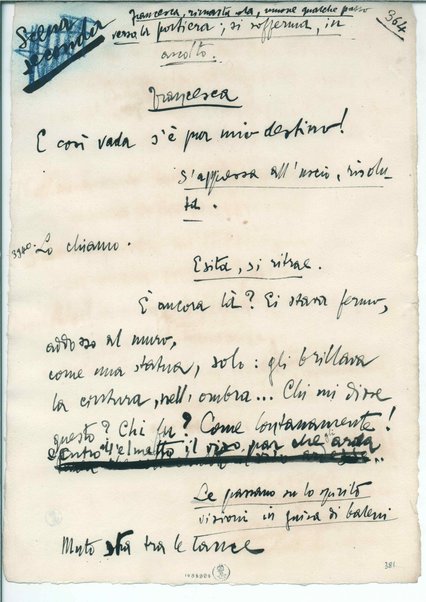 Scena
seconda
Francesca, rimasta sola, muove qualche passo
364
verso la portiera; si sofferma, in
ascolto.
Francesca
E così vada s'è pur mio destino!
S'appressa all'uscio, risolu-
ta.
Lo chiamo.
Esita, si ritrae.
È ancora là? Ei stava fermo,
addosso al muro,
come una statua, solo: gli brillava
la cintura, nell'ombra... Chi mi disse
questo? Chi fu? Come lontanamente!
dentro l'elmetto il viso par che arda
Le passano su lo spirito
visioni in guisa di baleni
Muto sta tra le lance
381